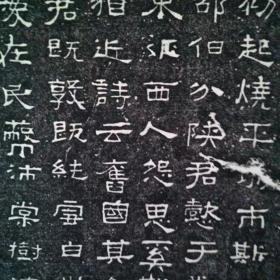 初起燒平城市斯
邵伯分陝君懿于
東征西人怨思奚
猶近詩云舊國其
君既敦既純雪白
愛在民蔽沛棠樹